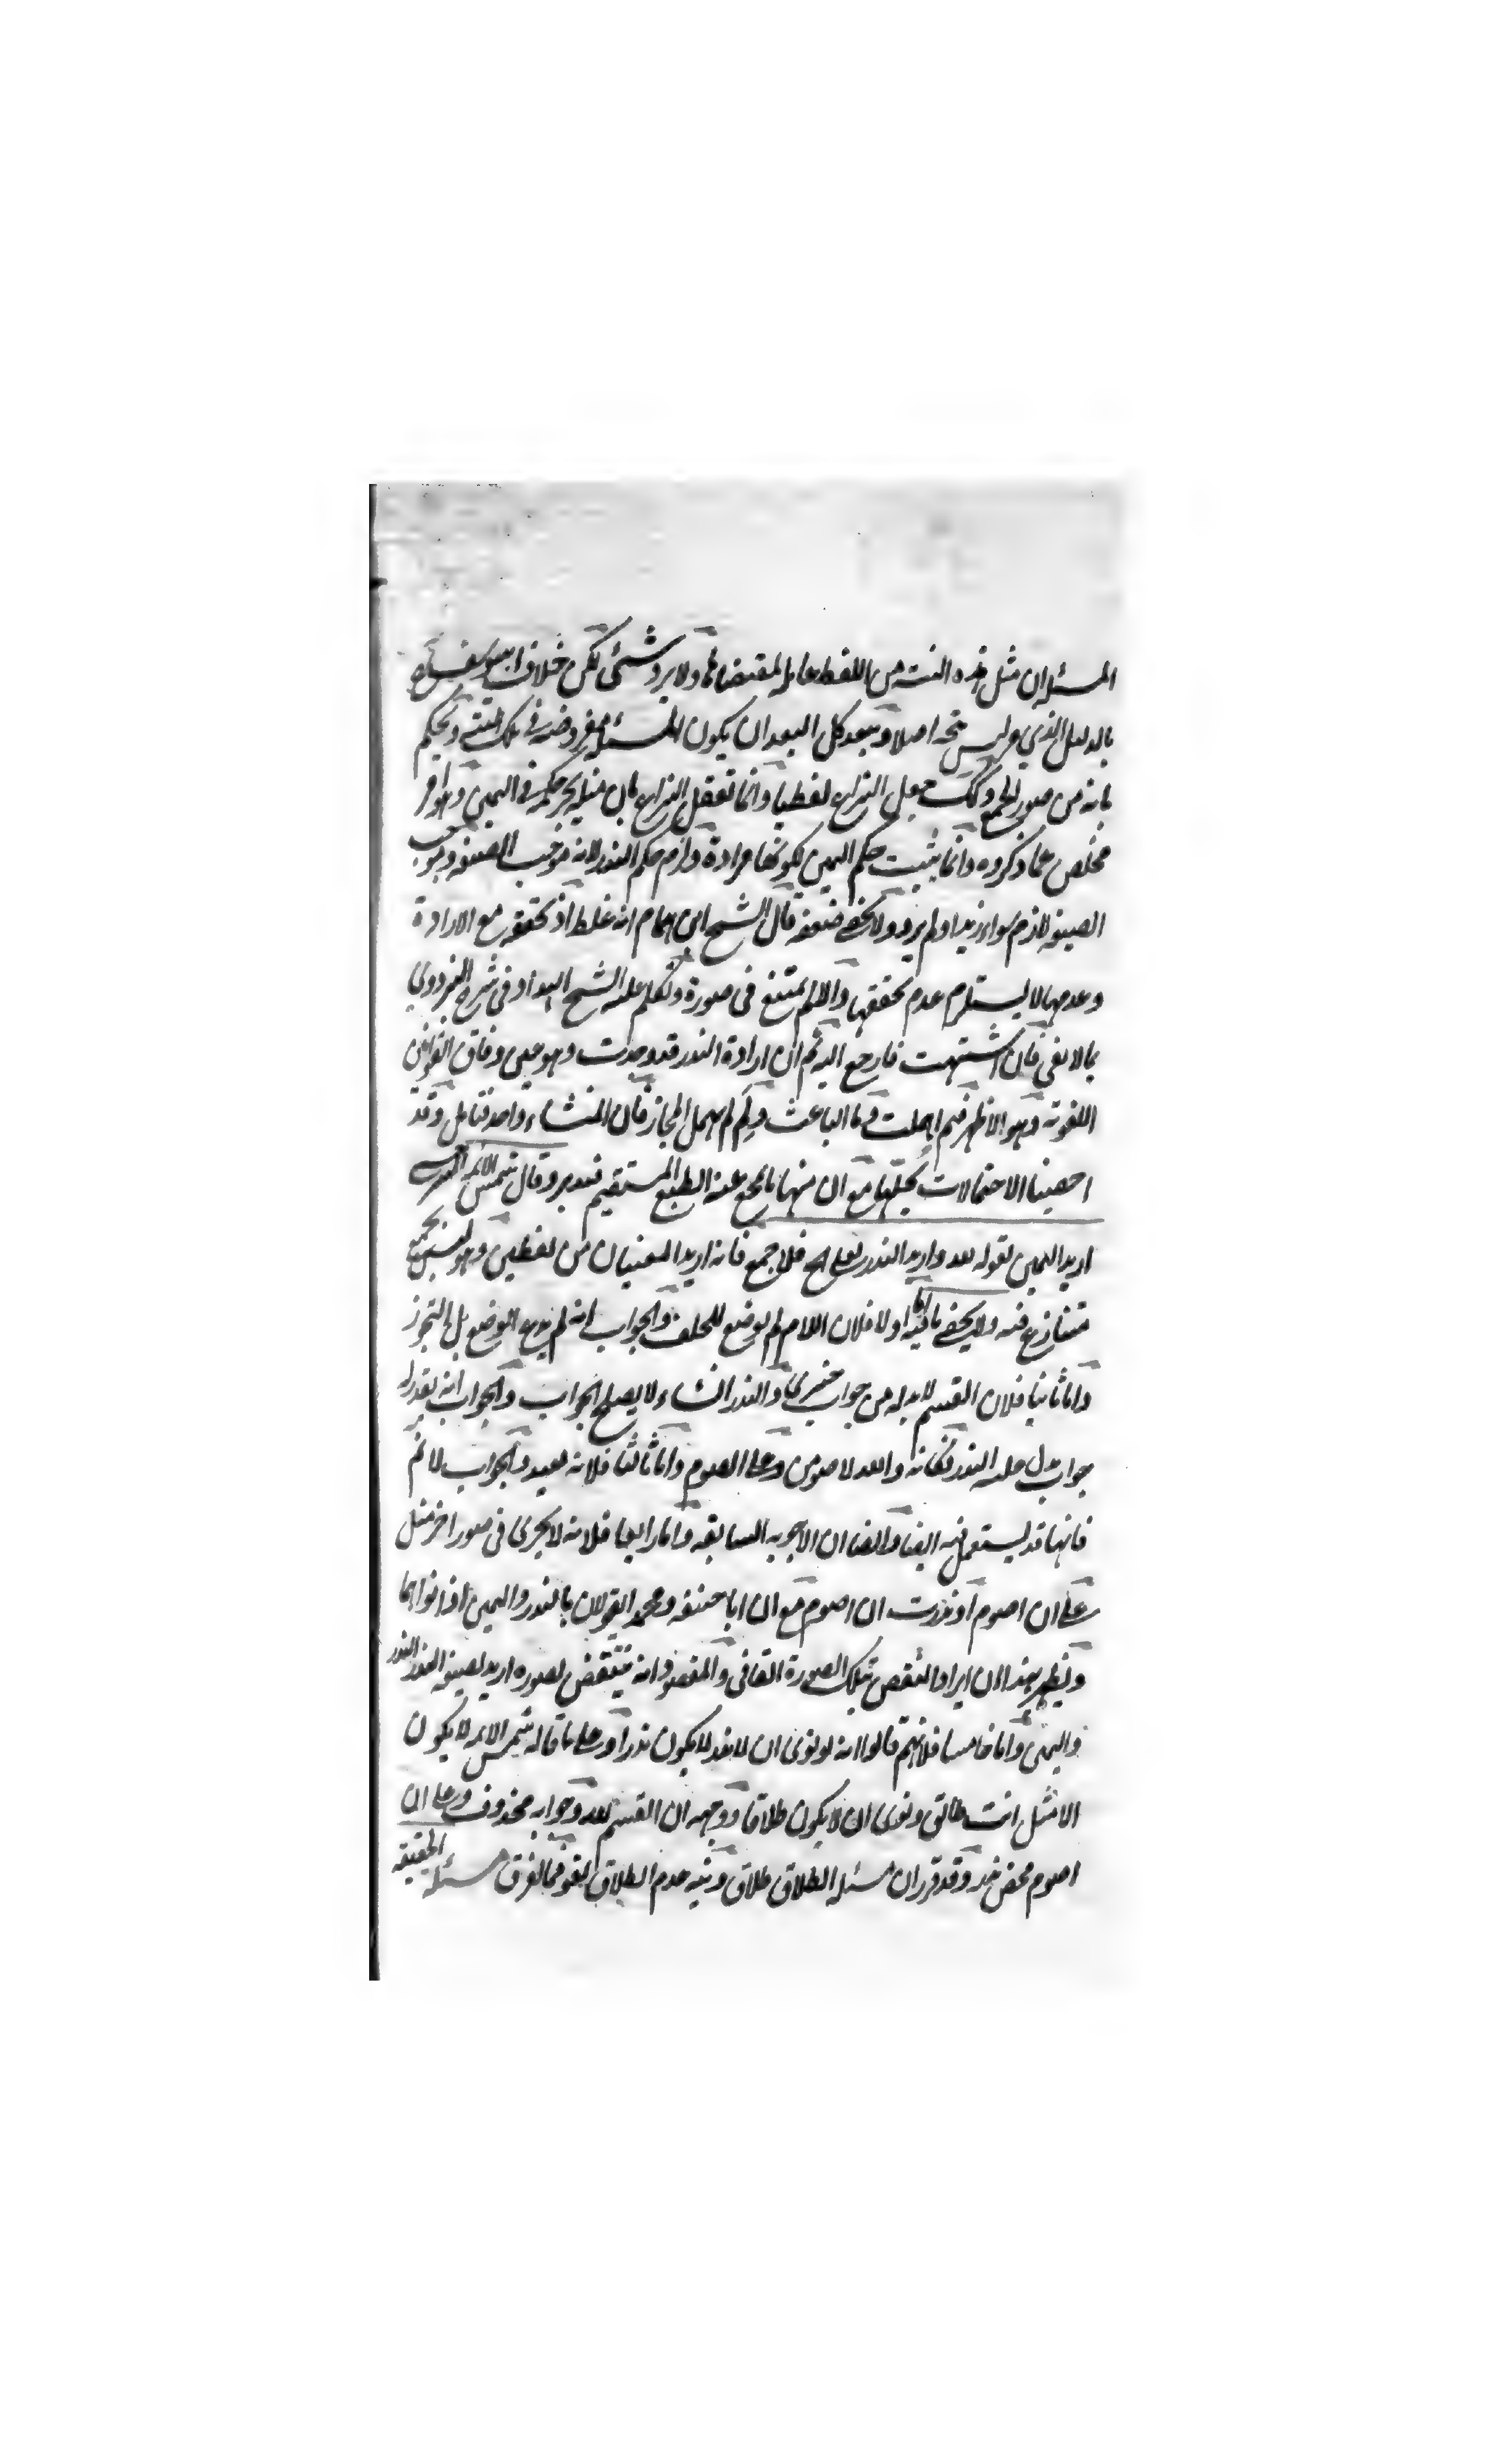 المسئلة ان مثل هذه النية من اللفظ عاملة لمقتضاها ولا يرد شئ لكن خلاف ابي يوسف
بالدليل الذي وليس بحجة اصلا وبعد كل البعد ان يكون المسئلة مفروضة في تلك النية ونحكم
بانه من صور الجمع وكك جعل النزاع لفظيا وانما تعقل النزاع بان مثله يجر حكمه في اليمين
مخلص عما ذكروه وانما يثبت حكم اليمين لكونها مرادة ولزم حكم النذر لانه موجب الصيغة وموجب
الصيغة لازم سواء اريد او لم يرد ولا يخفى ضعفه قال الشيخ ابن همام انه غلط اذ تحققه مع الارادة
وعدمها لا يستلزم عدم تحققها والا لم يمتنع في صورة وتكلم عليه الشيخ الهداد في شرح البزدوي
بما لا يغني فان اشتهيت فارجع اليه ثم ان ارادة النذر قد وجدت وهو على وفاق القوانين
اللغوية وهو الاظهر فبم اهملت وما الباعث ولم لم يهمل المجاز فان المنشاء واحد فتامل وقد
احصينا الاحتمالات كلها مع ان منها ما يمج عنه الطبع المستقيم فتدبر وقال شمس الائمة السرخسي
اريد اليمين بقوله لله واريد النذر بعلي الخ فلا جمع فانه اريد المعنيان من لفظين وهو ليس بجمع
متنازع فيه ولا يخفى ما فيه اما اولا فلان اللام لم يوضع للحلف والجواب انه لم يدع الوضع بل التجوز
واما ثانيا فلان القسم لا بد له من جواب خبري والنذر انشاء ولا يصلح الجواب والجواب انه يقدر له
جواب يدل عليه النذر فكانه والله لاصومن وعلي الصوم واما ثالثا فلانه بعيد والجواب لا نم
فانها قد يستعمل فيه ايضا وايضا ان الاجوبة السابقة واما رابعا فلانه لا يجري في صور اخر مثل
علي ان اصوم او نذرت ان اصوم مع ان ابا حنيفة ومحمد يقولان بالنذر واليمين اذا نواهما
ويظهر بهذا ان ايراد النقض بتلك الصورة اتفاقي والمقصود انه ينتقض بصورة اريد بصيغة النذر النذر
واليمين واما خامسا فلانهم قالوا انه لو نوى ان لا نذر لا يكون نذرا وعلى ما قاله شمس الائمة لا يكون
الا مثل انت طالق ونوى ان لا يكون طلاقا ووجهه ان القسم لله وجوابه محذوف وعلي ان
اصوم محض نذر وقد قرر ان مسئلة الطلاق طلاق ونية عدم الطلاق لغو فما الفرق مسئلة الحقيقة